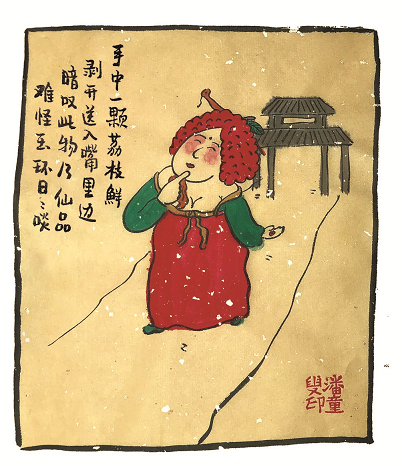 手中一颗荔枝鲜
剥开送入嘴里边
暗叹此物乃仙品
难怪玉环日々啖
潘童
叟印